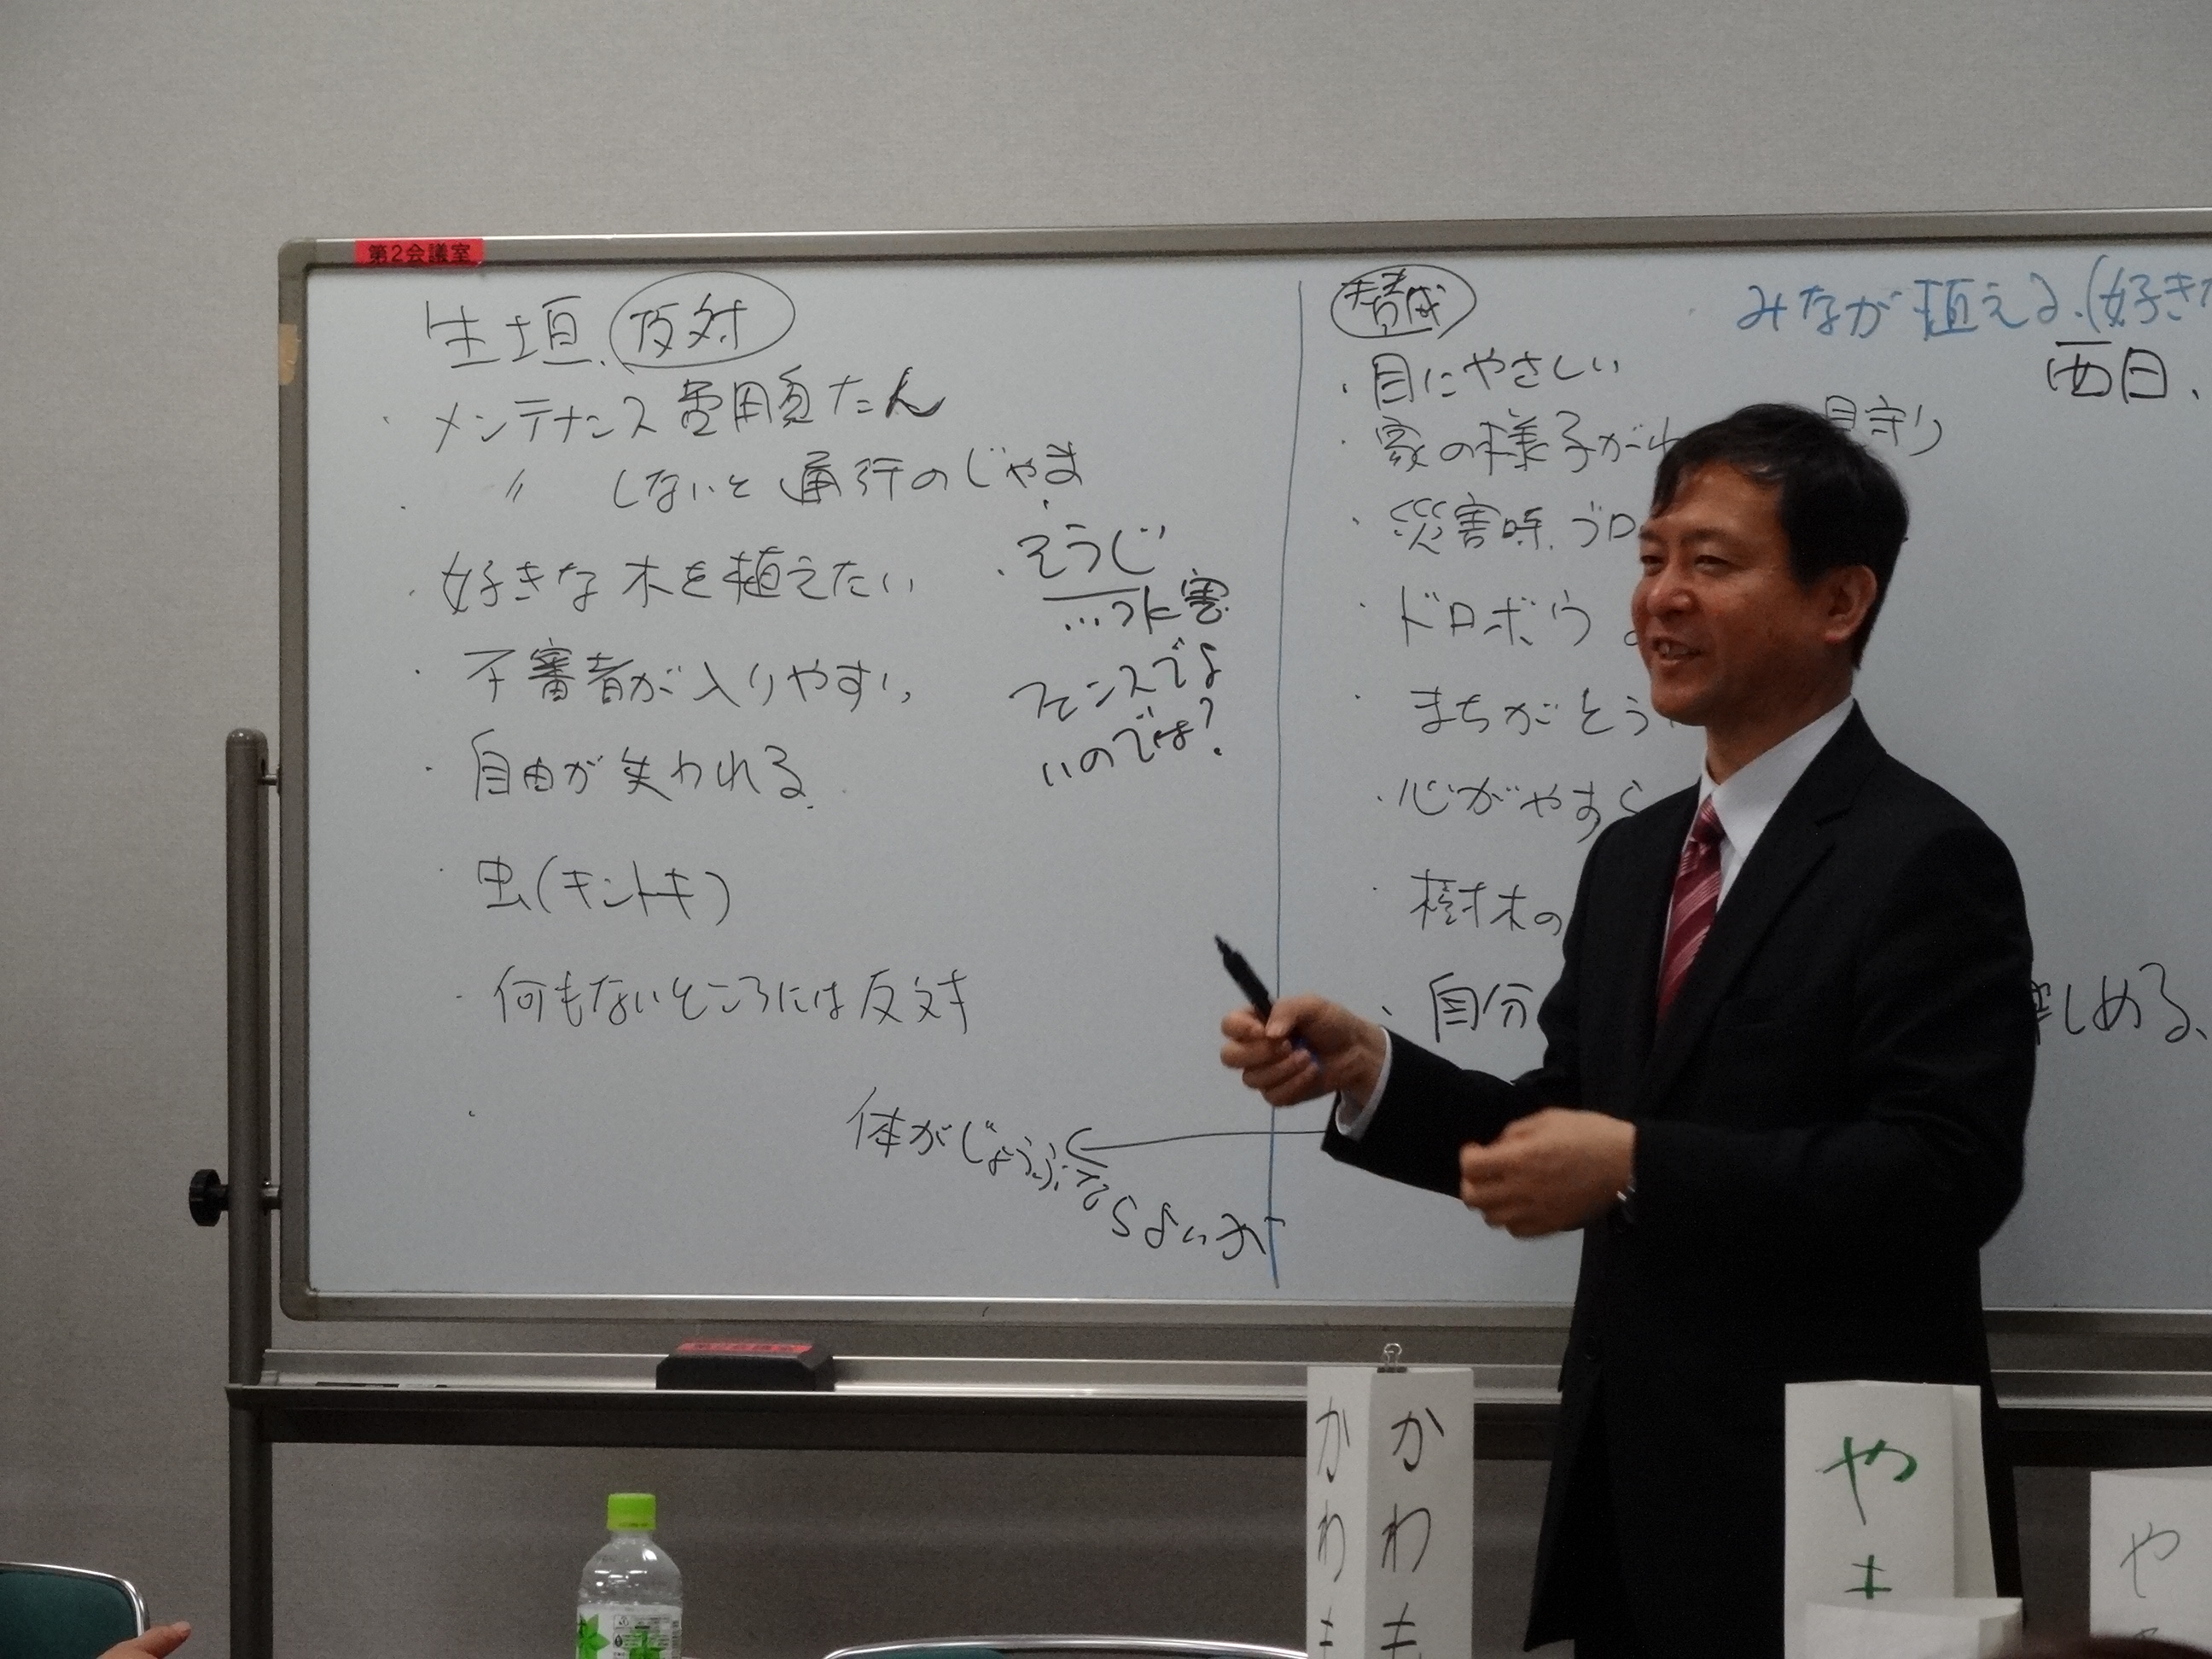 第2会議室
生垣 反対
・メンテナンス費用負たん
・〃 しないと通行のじゃま
・好きな木を植えたい
・不審者が入りやすい
・自由が失われる
・虫(キントキ)
・何もないところには反対
・そうじ
…水害
フェンスでよ
いのでは?
体がじょうぶ
ならよいが
賛成
・目にやさしい
・家の様子がわ
見守り
・災害時.ブロ
・ドロボウ
・まちがとう
・心がやすら
・樹木の
・自分
楽しめる、
みなが植える.(好きな
西日、
かわも
かわも
やま
や